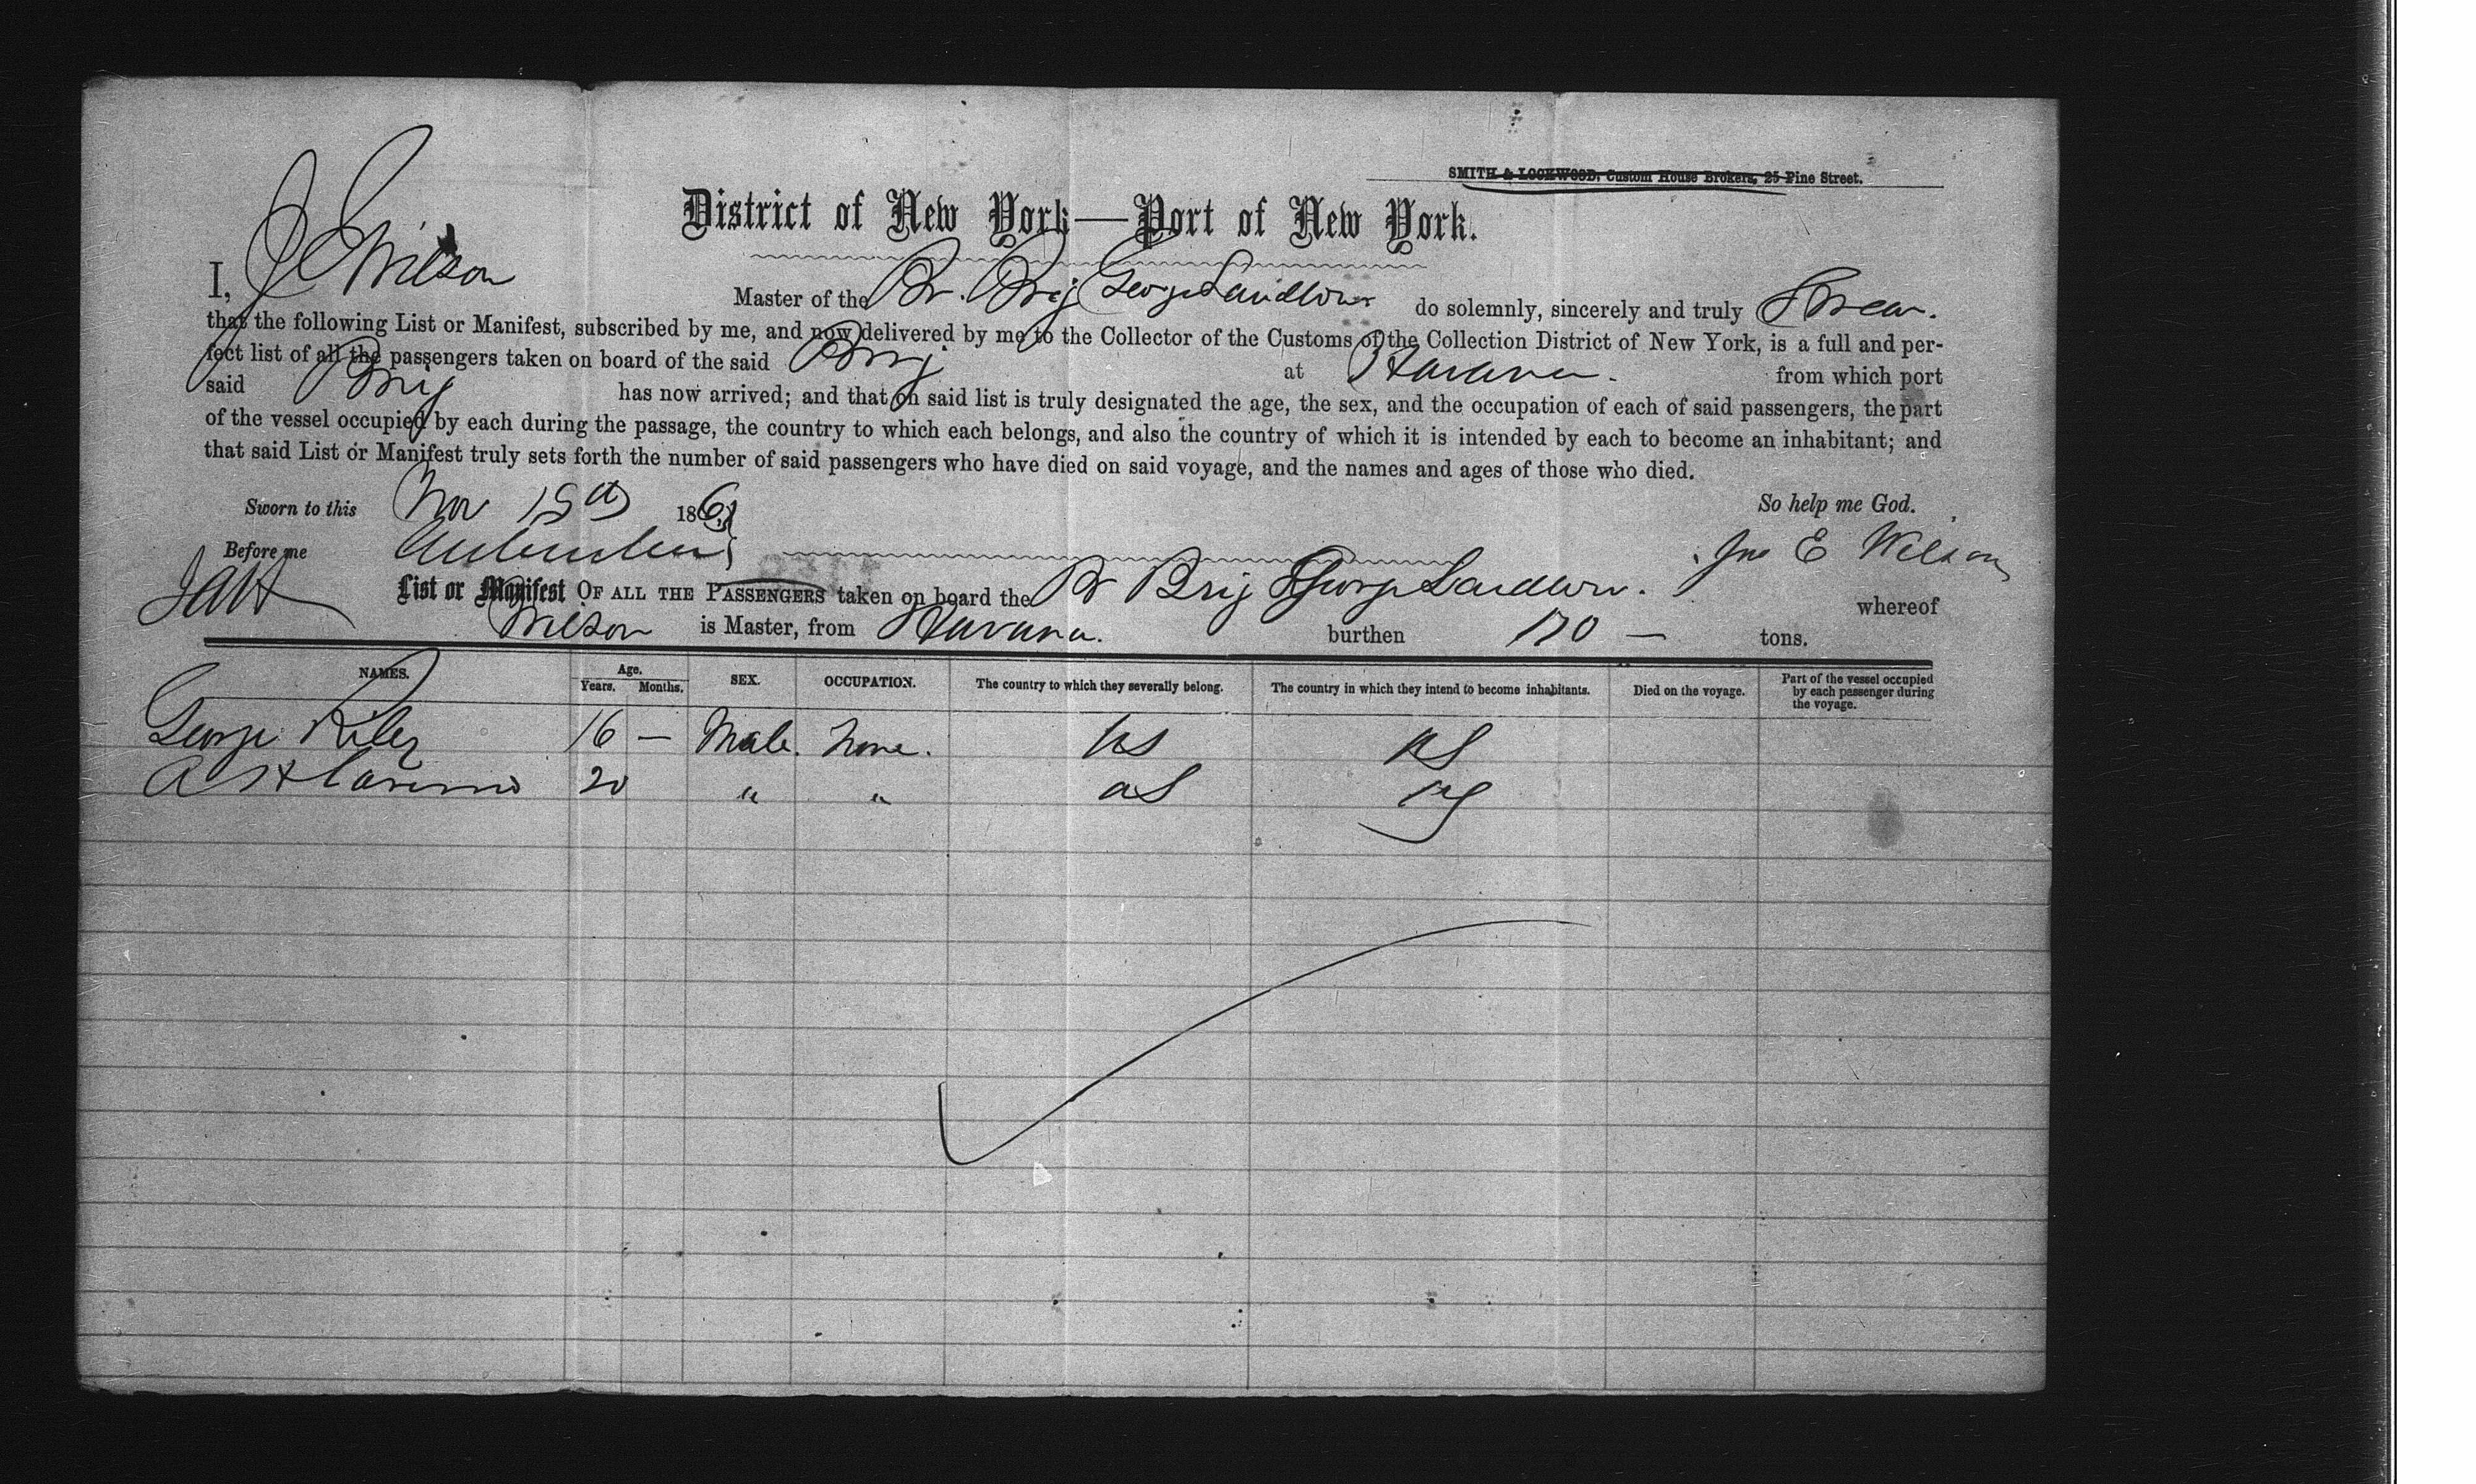 SMITH & LOCKWOOD, Custom House Brokers, 25 Pine Street.
District of New York—Port of New York.
I, J E Wilson Master of the Br. Brig George do solemnly, sincerely and truly Swear.
that the following List or Manifest, subscribed by me, and now delivered by me to the Collector of the Customs of the Collection District of New York, is a full and per-
fect list of all the passengers taken on board of the said Brig at Havana. from which port
said Brig has now arrived; and that on said list is truly designated the age, the sex, and the occupation of each of said passengers, the part
of the vessel occupied by each during the passage, the country to which each belongs, and also the country of which it is intended by each to become an inhabitant; and
that said List or Manifest truly sets forth the number of said passengers who have died on said voyage, and the names and ages of those who died.
Sworn to this Nov 15th 186 So help me God.
Before me Jno E Wilson
List or Manifest OF ALL THE PASSENGERS taken on board the Br Brig George whereof
Wilson is Master, from Havana. burthen 170 — tons.
NAMES. Age. Years. Months. SEX. OCCUPATION. The country to which they severally belong. The country in which they intend to become inhabitants. Died on the voyage. Part of the vessel occupied by each passenger during the voyage.
George Riley 16 — Male. None. US US
A 20 " " US US